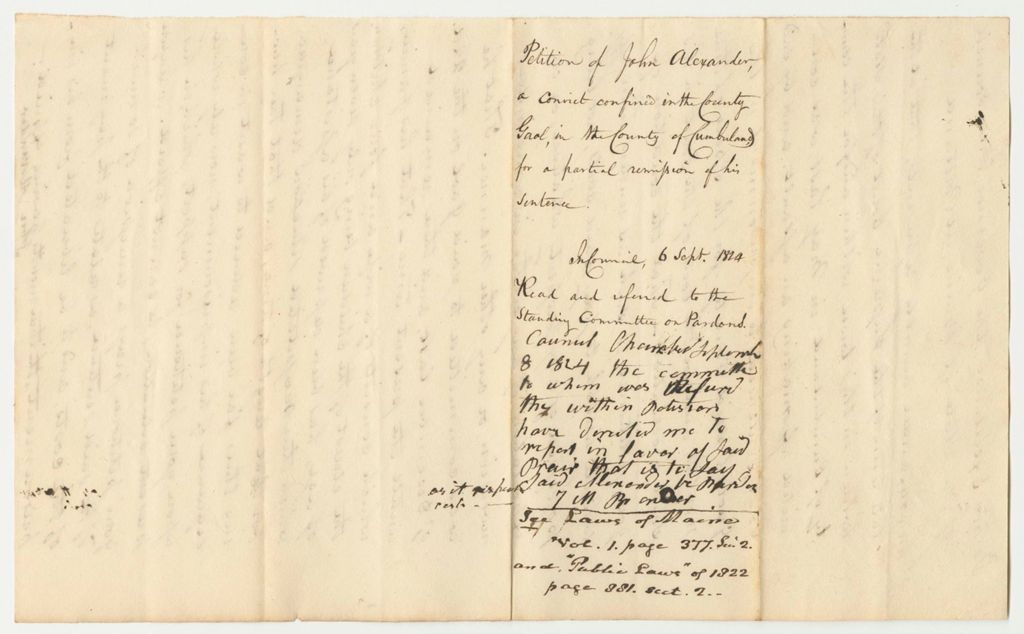 Petition of John Alexander,
a Convict confined in the County
Gaol, in the County of Cumberland
for a partial remission of his
sentence.
In Council, 6 Sept. 1824
Read and referred to the
Standing Committee on Pardons.
Council Chamber September
8 1824 the committe
to whom was Refurd
the within Petision
have Derected me to
report in favor of Said
that is to say
as it respects Said Alexander be
costs
See Laws of Maine
Vol. 1. page 377. Sec. 2.
and "Public Laws" of 1822
page 881. sect. 2.